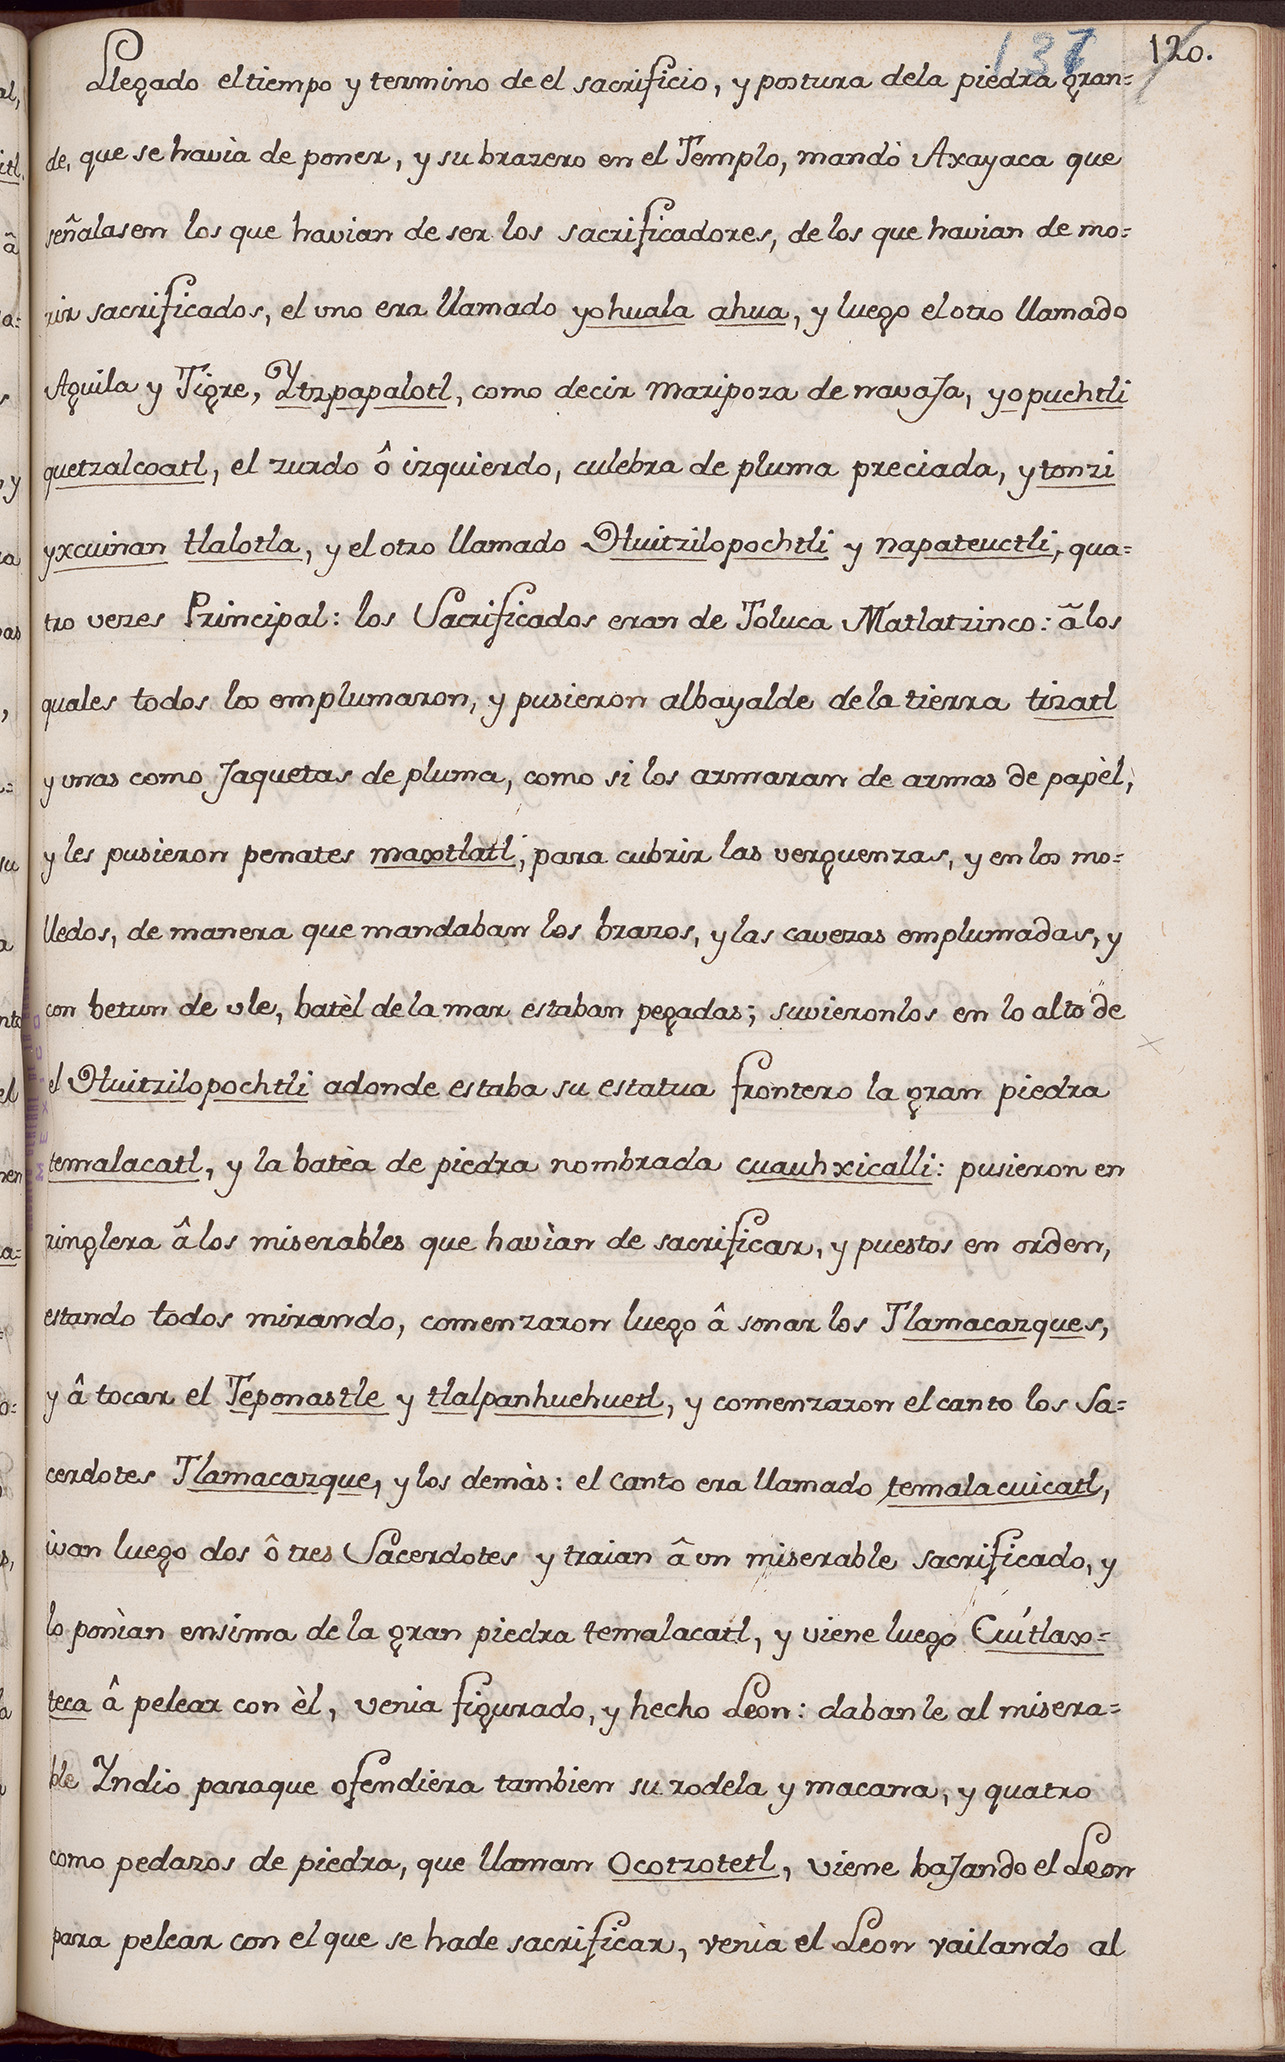 137 120.
Llegado el tiempo y termino de el sacrificio, y postura dela piedra gran=
de, que se havìa de poner, y su brazero en el Templo, mandò Axayaca que
señalasen los que havian de ser los sacrificadores, de los que havian de mo=
rir sacrificados, el uno era llamado yohuala ahua, y luego el otro llamado
Aguila y Tigre, Ytzpapalotl, como decir Maripoza de navaJa, yopuchtli
quetzalcoatl, el zurdo ô izquierdo, culebra de pluma preciada, ytonzi
yxcuinan tlalotla, y el otro llamado Huitzilopochtli y napateuctli, qua=
tro vezes Principal: los Sacrificados eran de Toluca Matlatzinco: â los
quales todos los emplumaron, y pusieron albayalde dela tierra tizatl
y unas como Jaquetas de pluma, como si los armaran de armas de papèl,
y les pusieron penates maxtlatl, para cubrir las verguenzas, y en los mo=
lledos, de manera que mandaban los brazos, y las cavezas emplumadas, y
con betun de ule, batèl de la mar estaban pegadas; suvieronlos en lo alto de
el Huitzilopochtli adonde estaba su estatua frontero la gran piedra
temalacatl, y la batèa de piedra nombrada cuauhxicalli: pusieron en
ringlera â los miserables que havìan de sacrificar, y puestos en orden,
estando todos mirando, comenzaron luego â sonar los Tlamacazques,
y â tocar el Teponastle y tlalpanhuehuetl, y comenzaron el canto los Sa=
cerdotes Tlamacazque, y los demàs: el canto era llamado temalacuicatl,
ivan luego dos ô tres Sacerdotes y traian â un miserable sacrificado, y
lo ponìan ensima de la gran piedra temalacatl, y viene luego Cuitlax=
teca â pelear con èl, venia figurado, y hecho Leon: dabanle al misera=
ble Yndio paraque ofendiera tambien su rodela y macana, y quatro
como pedazos de piedra, que llaman Ocotzotetl, viene baJando el Leon
para pelear con el que se hade sacrificar, venìa el Leon vailando al